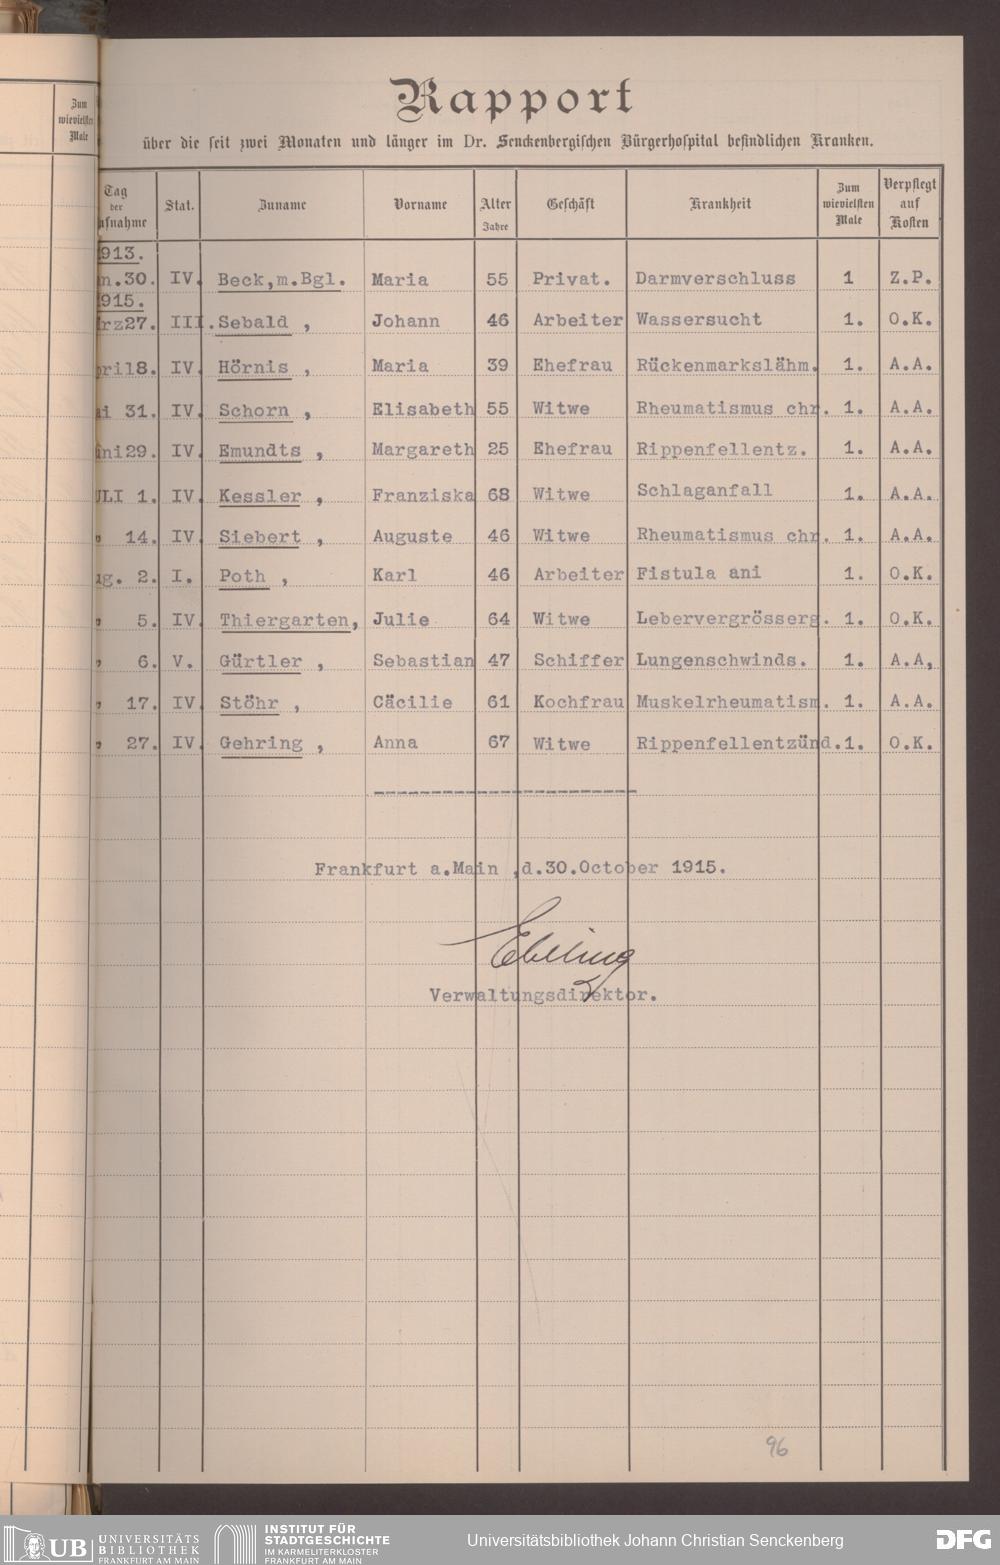 Zum
wievielsten
Male
Rapport
über die seit zwei Monaten und länger im Dr. Senckenbergischen Bürgerhospital befindlichen Kranken.
Tag der ufnahme Stat. Zuname Vorname Alter Jahre Geschäft Krankheit Zum wievielsten Male Verpflegt auf Kosten
913.
n.30. IV. Beck,m.Bgl. Maria 55 Privat. Darmverschluss 1 Z.P.
915.
rz27. III. Sebald , Johann 46 Arbeiter Wassersucht 1. O.K.
pril8. IV. Hörnis , Maria 39 Ehefrau Rückenmarkslähm. 1. A.A.
ai 31. IV. Schorn , Elisabeth 55 Witwe Rheumatismus chr. 1. A.A.
uni29. IV. Emundts , Margareth 25 Ehefrau Rippenfellentz. 1. A.A.
ULI 1. IV. Kessler , Franziska 68 Witwe Schlaganfall 1. A.A.
" 14. IV. Siebert , Auguste 46 Witwe Rheumatismus chr. 1. A.A.
ug. 2. I. Poth , Karl 46 Arbeiter Fistula ani 1. O.K.
" 5. IV. Thiergarten, Julie 64 Witwe Lebervergrösserg. 1. O.K.
" 6. V. Gürtler , Sebastian 47 Schiffer Lungenschwinds. 1. A.A,
" 17. IV. Stöhr , Cäcilie 61 Kochfrau Muskelrheumatism. 1. A.A.
" 27. IV. Gehring , Anna 67 Witwe Rippenfellentzünd.1. O.K.
Frankfurt a.Main ,d.30.October 1915.
Ebeling
Verwaltungsdirektor.
96
UB UNIVERSITÄTS BIBLIOTHEK FRANKFURT AM MAIN
INSTITUT FÜR STADTGESCHICHTE IM KARMELITERKLOSTER FRANKFURT AM MAIN
Universitätsbibliothek Johann Christian Senckenberg
DFG